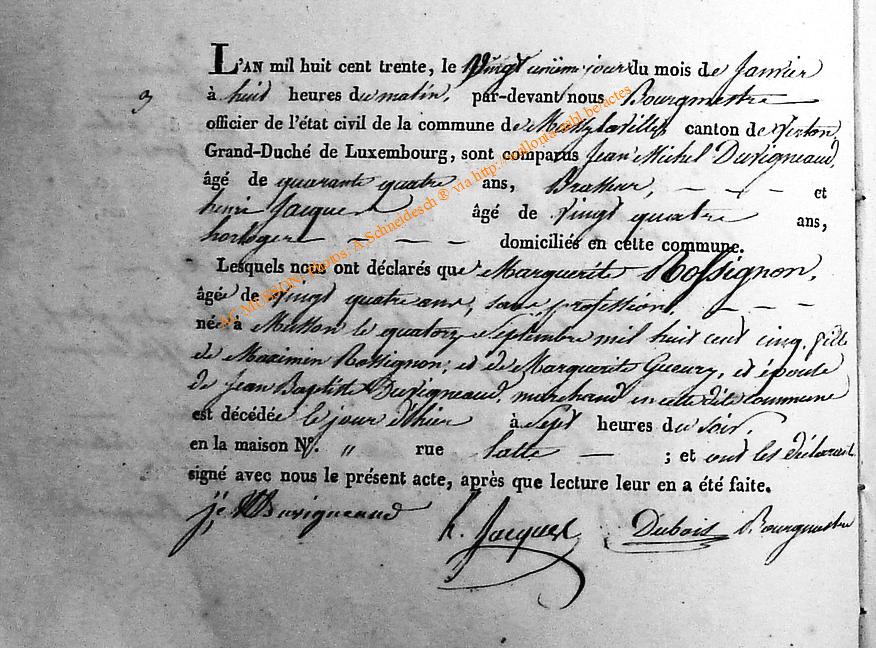 L'AN mil huit cent trente, le Vingt unieme jour du mois de Janvier
3 à huit heures du matin, par-devant nous Bourgmestre
officier de l'état civil de la commune de Mussy la Ville, canton de Virton,
Grand-Duché de Luxembourg, sont comparus Jean Michel Duvigneaud,
âgé de quarante quatre ans, Brasseur, — — — et
henri Jacques âgé de Vingt quatre ans,
horloger — — — — domiciliés en cette commune.
Lesquels nous ont déclarés que Marguerite Rossignon,
âgée de Vingt quatre ans, sans profession, — — —
née à Musson le quatorze Septembre mil huit cent cinq, fille
de Maximin Rossignon, et de Marguerite Gueury, et épouse
de Jean Baptiste Duvigneaud, marchand en cette dite commune
est décédée le jour d'hier à Sept heures du Soir,
en la maison N°. " rue — ; et ont les déclarants
signé avec nous le présent acte, après que lecture leur en a été faite.
Duvigneaud h. Jacques Dubois Bourgmestre
AC MUSSON, Photos: A.Schneidesch ® via http://wallonia.sabl.be/actes